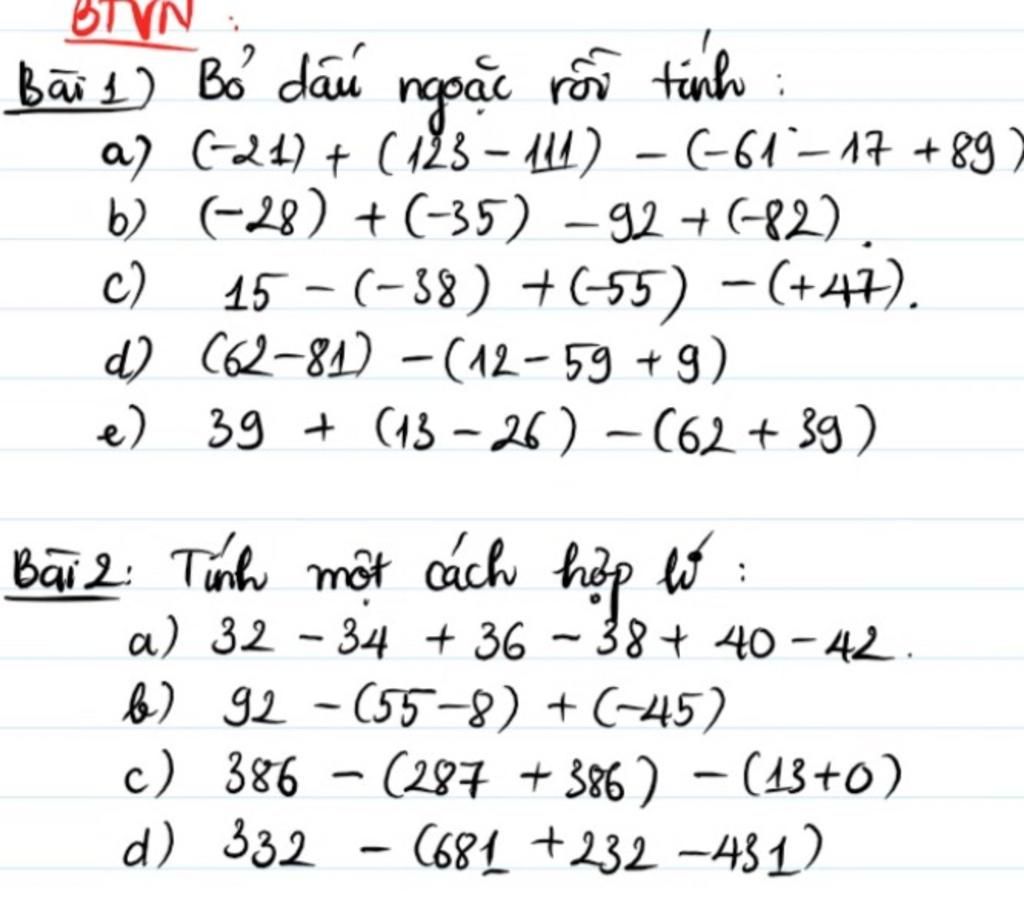 BTVN :
Bài 1) Bỏ dấu ngoặc rồi tính :
a) (-21) + (123 - 111) - (-61 - 17 + 89)
b) (-28) + (-35) - 92 + (-82).
c) 15 - (-38) + (-55) - (+47).
d) (62-81) - (12 - 59 + 9)
e) 39 + (13 - 26) - (62 + 39)
Bài 2: Tính một cách hợp lí :
a) 32 - 34 + 36 - 38 + 40 - 42.
b) 92 - (55-8) + (-45)
c) 386 - (287 + 386) - (13+0)
d) 332 - (681 + 232 - 431)